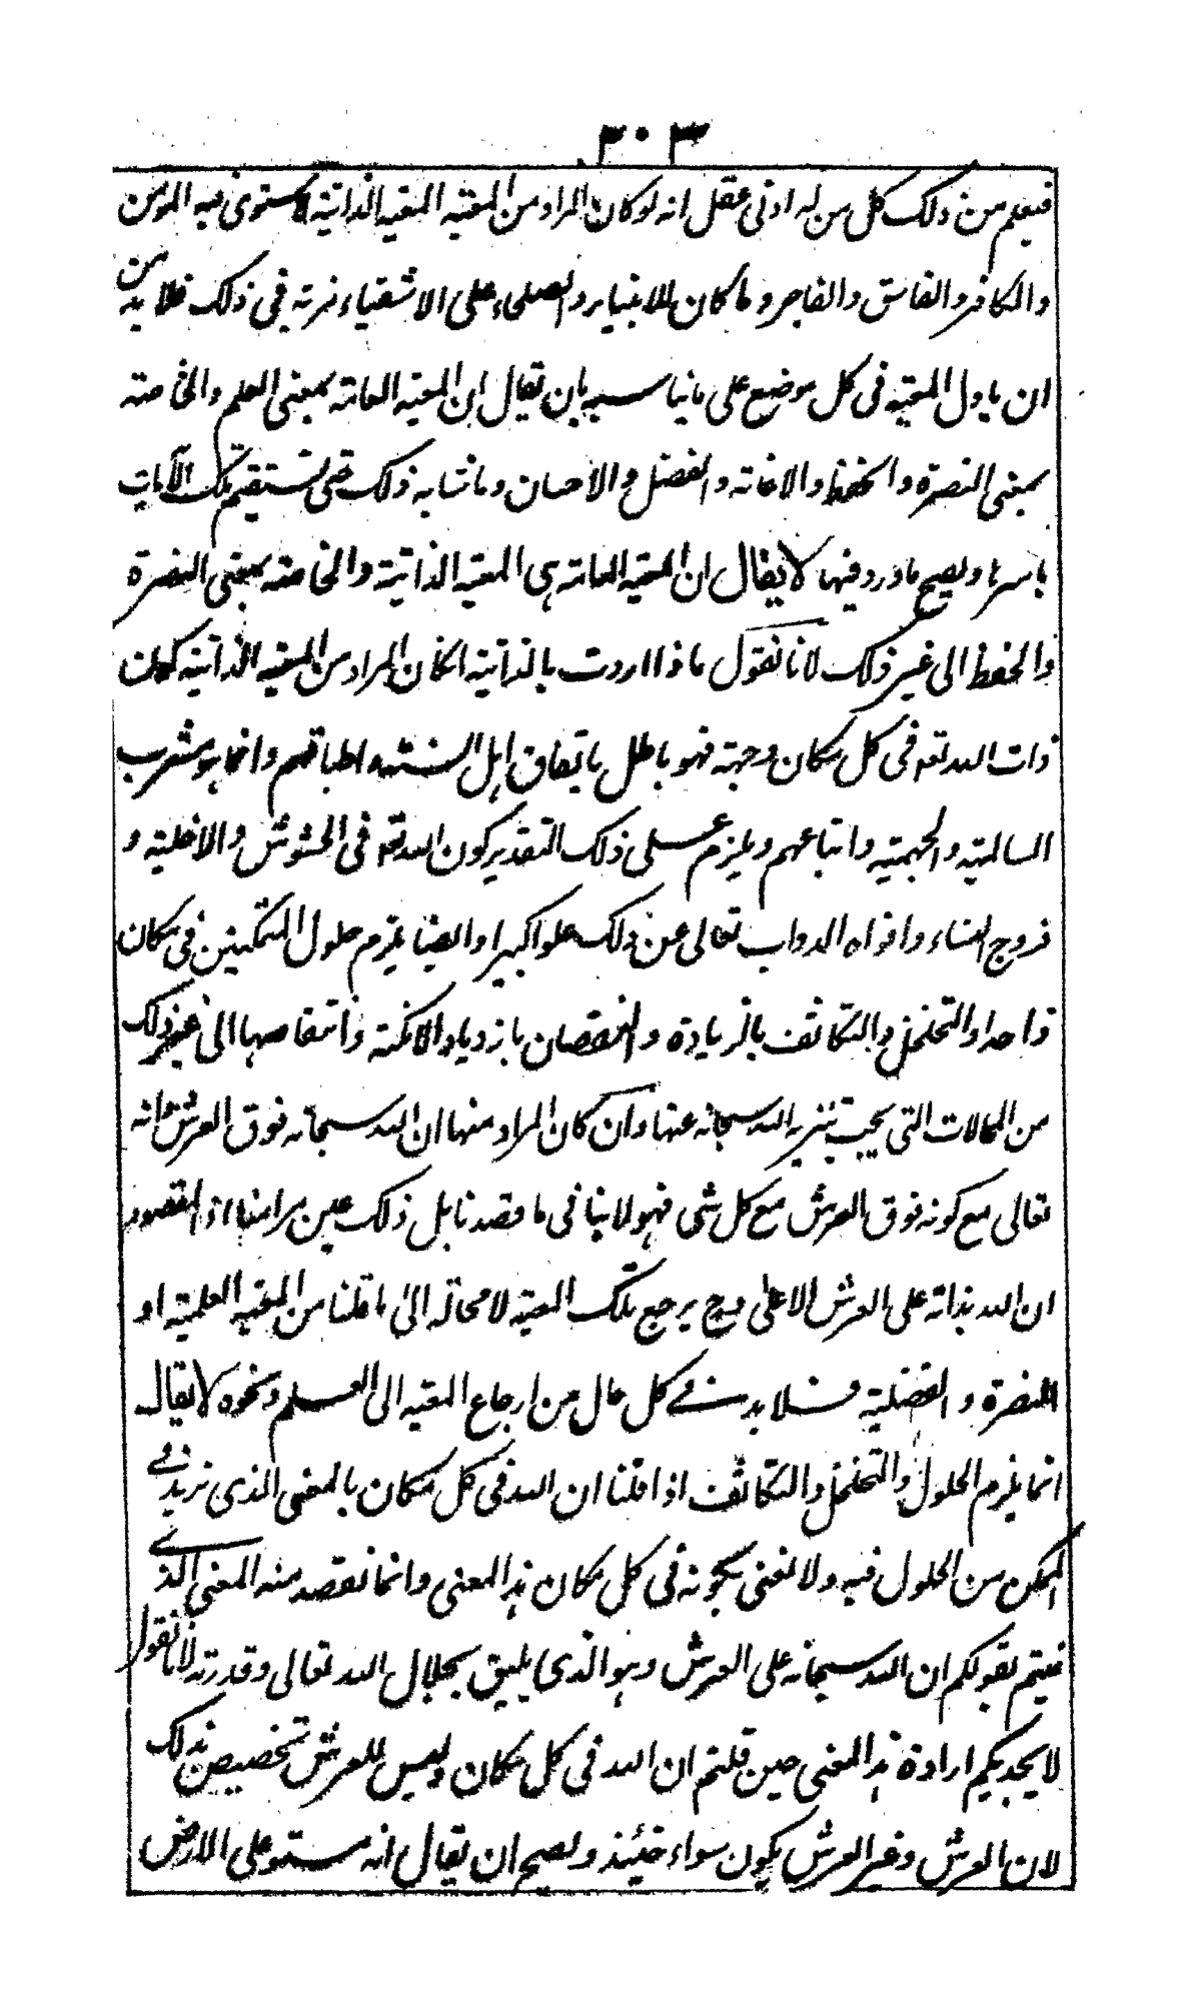 ٣٠٣
فيعلم من ذلك كل من له ادنى عقل انه لو كان المراد من المعية المعية الذاتية لاستوى فيه المؤمن
والكافر والفاسق والفاجر وما كان للانبياء والصلحاء على الاشقياء مزية فى ذلك فلا بد من
ان ياول المعية فى كل موضع على ما يناسبه بان يقال ان المعية العامة بمعنى العلم والخاصة
بمعنى النصرة والحفظ والاغاثة والفضل والاحسان وما شابه ذلك حتى تستقيم تلك الآيات
باسرها ويصح ما ورد فيها لا يقال ان المعية العامة هى المعية الذاتية والخاصة بمعنى النصرة
والحفظ الى غير ذلك لانا نقول ماذا اردت بالذاتية انكان المراد من المعية الذاتية كون
ذات الله تعه فى كل مكان وجهة فهو باطل باتفاق اهل السنة واطباقهم وانما هو مشرب
السالمية والجهمية واتباعهم ويلزم على ذلك التقدير كون الله تعه فى الحشوش والاخلية و
فروج النساء وافواه الدواب تعالى عن ذلك علوا كبيرا وايضا يلزم حلول المتمكنين فى مكان
واحد او التخلخل والتكاثف بالزيادة والنقصان بازدياد الامكنة وانتقاصها الى غير ذلك
من المحالات التى يجب تنزيه الله سبحانه عنها وان كان المراد منها ان الله سبحانه فوق العرش وانه
تعالى مع كونه فوق العرش مع كل شى فهو لا ينافى ما قصدنا بل ذلك عين مرامنا اذ المقصود
ان الله بذاته على العرش الاعلى وح يرجع تلك المعية لا محالة الى ما قلنا من المعية العلمية او
النصرة والفضلية فلا بد فى كل حال من ارجاع المعية الى العلم ونحوه لا يقال
انما يلزم الحلول والتخلخل والتكاثف اذا قلنا ان الله فى كل مكان بالمعنى الذى نريد فى
الممكن من الحلول فيه ولا نعنى بكونه فى كل مكان هذا المعنى وانما نقصد منه المعنى الذى
عنيتم بقولكم ان الله سبحانه على العرش وهو الذى يليق بجلال الله تعالى وقدرته لانا نقول
لا يجديكم ارادة هذا المعنى حين قلتم ان الله فى كل مكان وليس للعرش تخصيص بذلك
لان العرش وغير العرش يكون سواء حينئذ ويصح ان يقال انه مستو على الارض